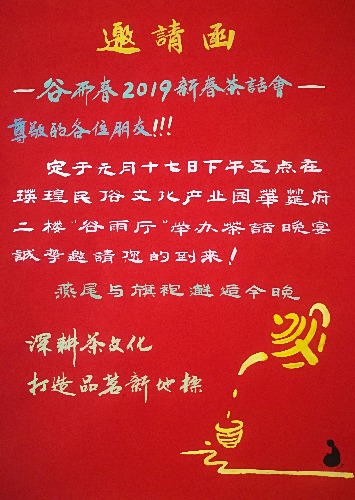 邀請函
—谷雨春2019新春茶話會—
尊敬的各位朋友!!!
定于元月十七日下午五点在
璞瑝民俗文化产业园華莚府
二楼"谷雨厅"举办茶話晚宴
誠挚邀請您的到来!
燕尾与旗袍邂逅今晚
深耕茶文化
打造品茗新地標